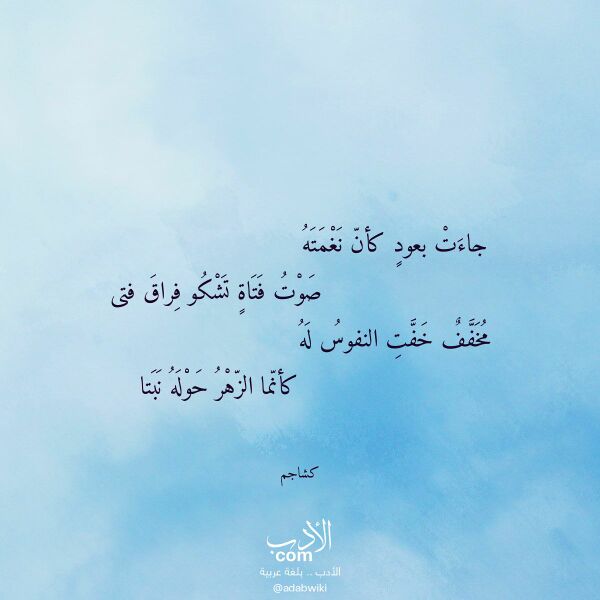 جاءَتْ بعودٍ كأنّ نَغْمَتَهُ
صَوْتُ فَتَاةٍ تَشْكُو فِراقَ فتى
مُخَفَّفٌ خَفَّتِ النفوسُ لَهُ
كأنّما الزّهْرُ حَوْلَهُ نَبَتا
كشاجم
الأدب
com
الأدب .. بلغة عربية
@adabwiki